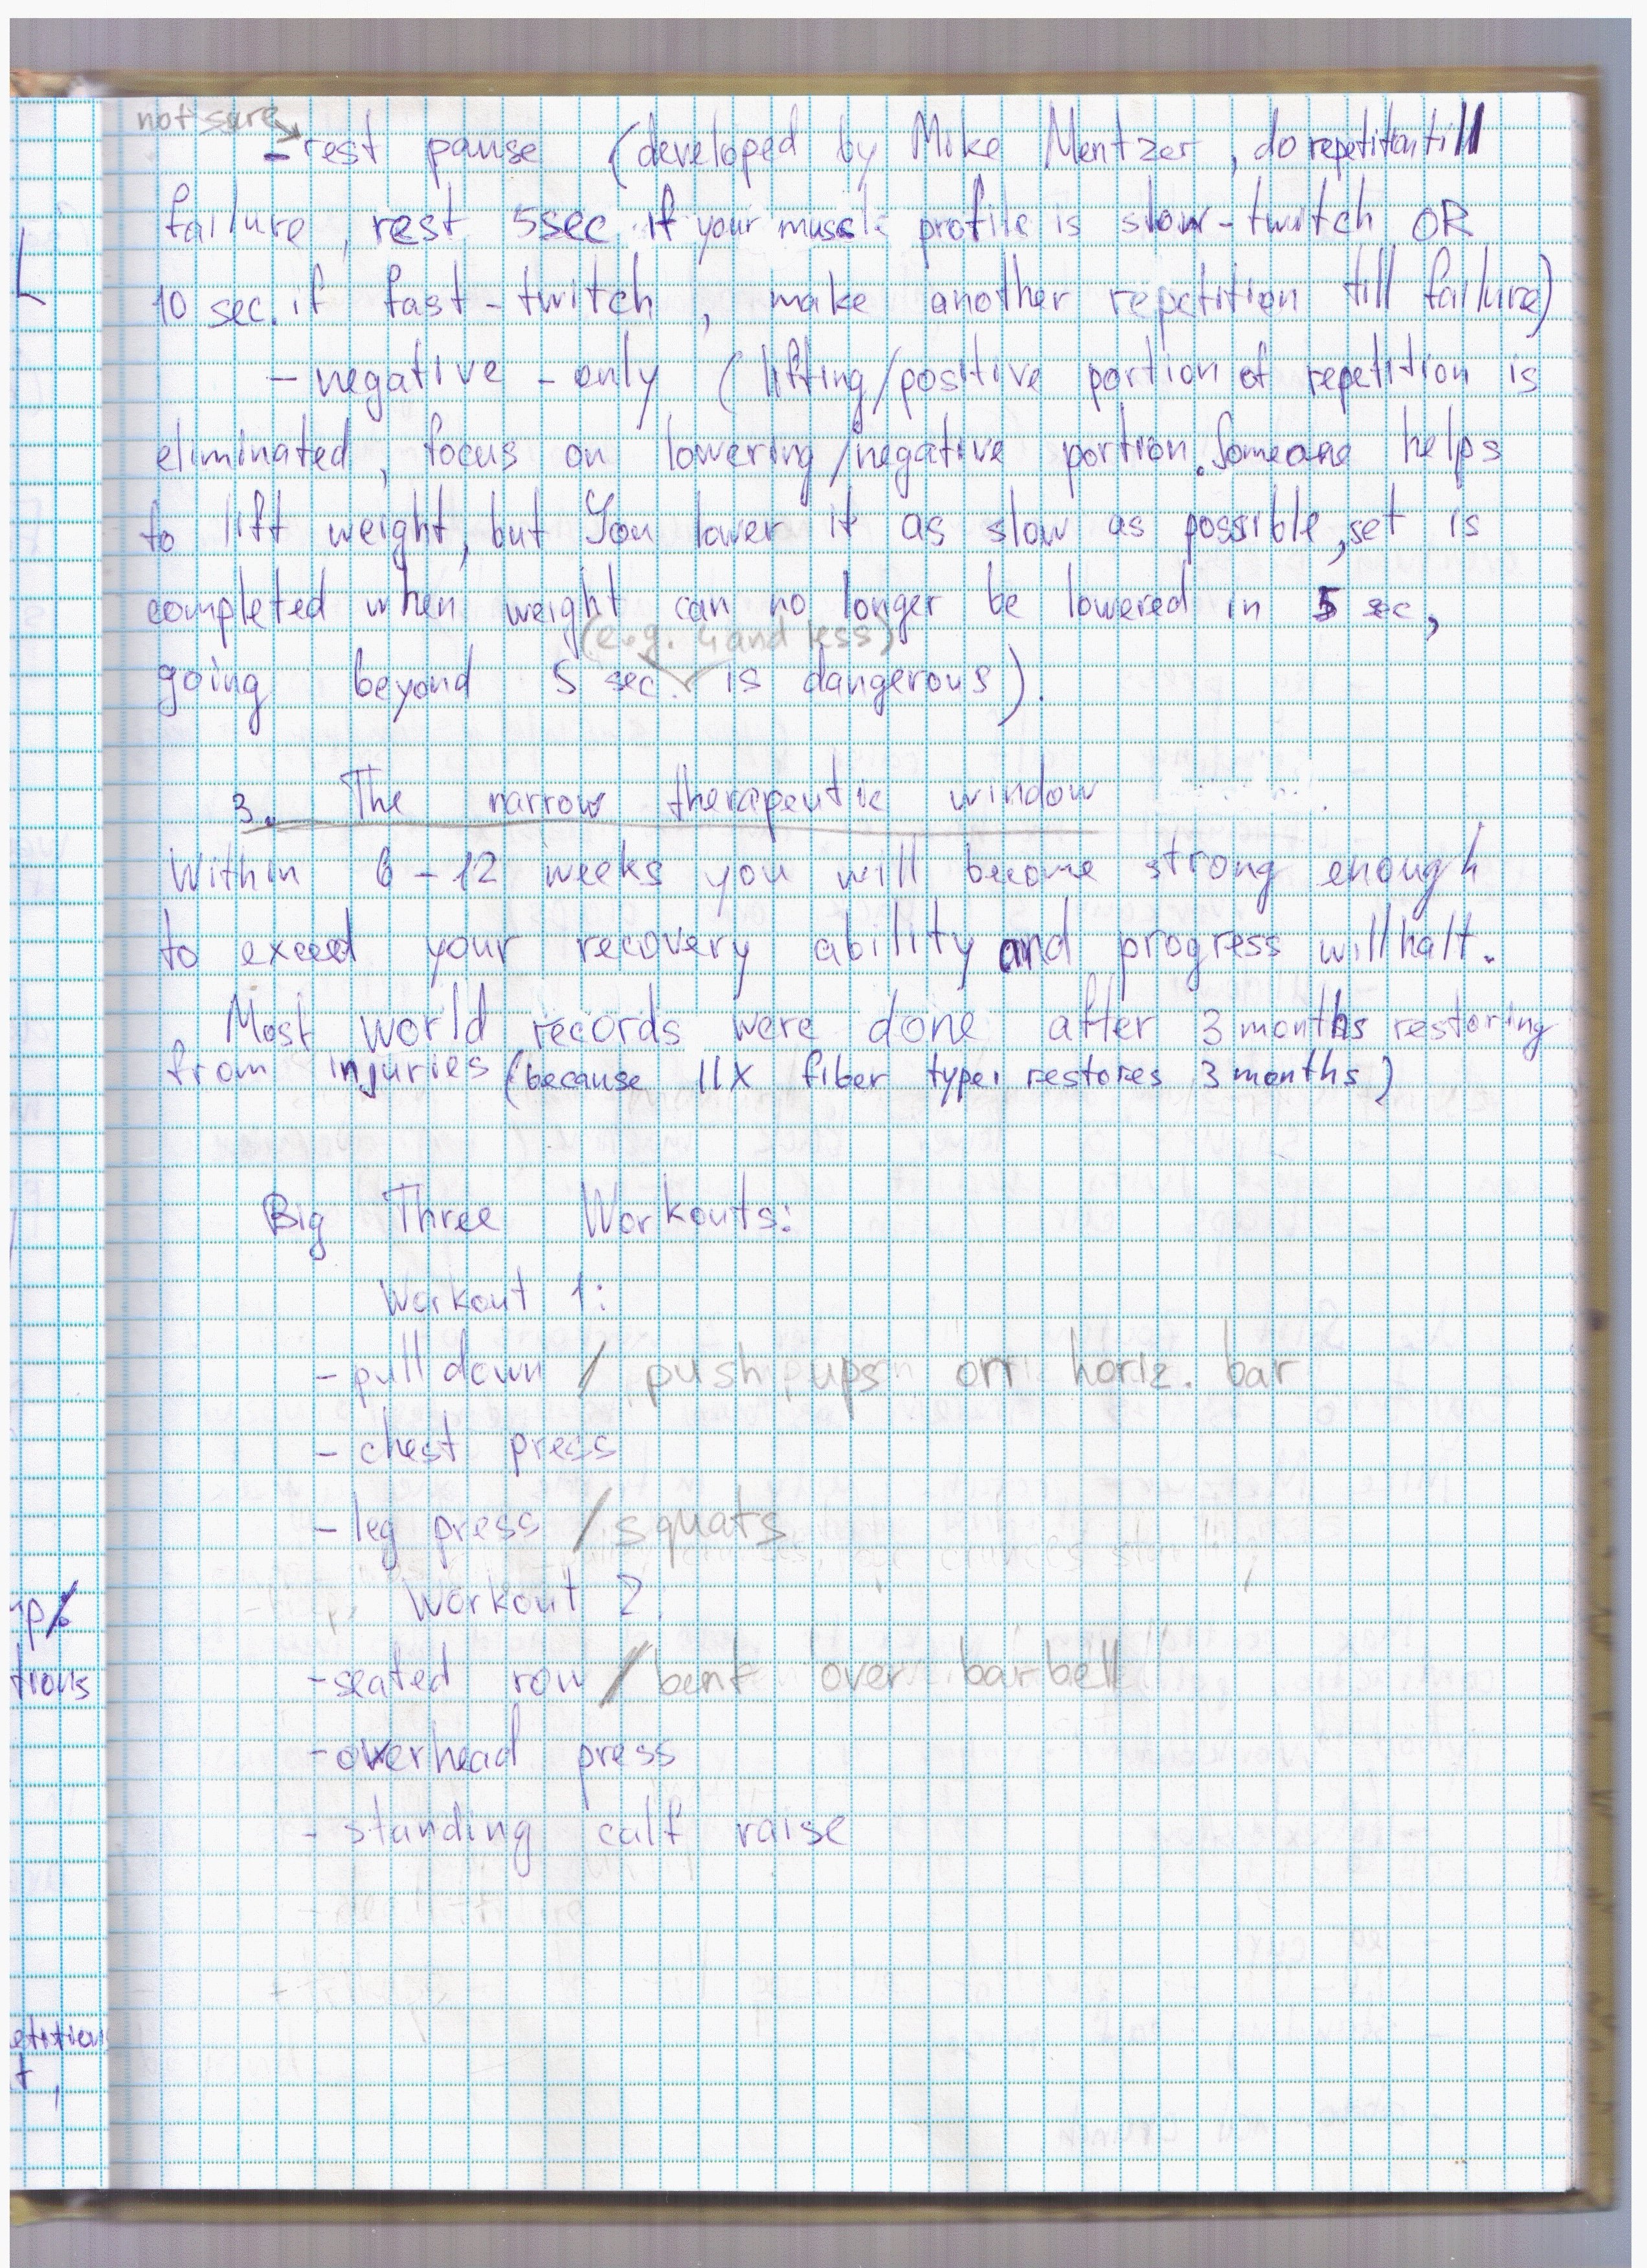 not sure
- rest pause (developed by Mike Mentzer, do repetition till
failure, rest 5sec if your muscle profile is slow-twitch OR
10 sec. if fast-twitch, make another repetition till failure)
- negative-only (lifting/positive portion of repetition is
eliminated, focus on lowering/negative portion. Someone helps
to lift weight, but You lower it as slow as possible, set is
completed when weight can no longer be lowered in 5 sec,
(e.g. 4 and less)
going beyond 5 sec. is dangerous).
3. The narrow therapeutic window
Within 6-12 weeks you will become strong enough
to exceed your recovery ability and progress will halt.
Most world records were done after 3 months restoring
from injuries (because IIX fiber types restores 3 months)
Big Three Workouts:
Workout 1:
- pull down / push ups on horiz. bar
- chest press
- leg press / squats
Workout 2.
- seated row / bent over barbell
- overhead press
- standing calf raise
tions
etition